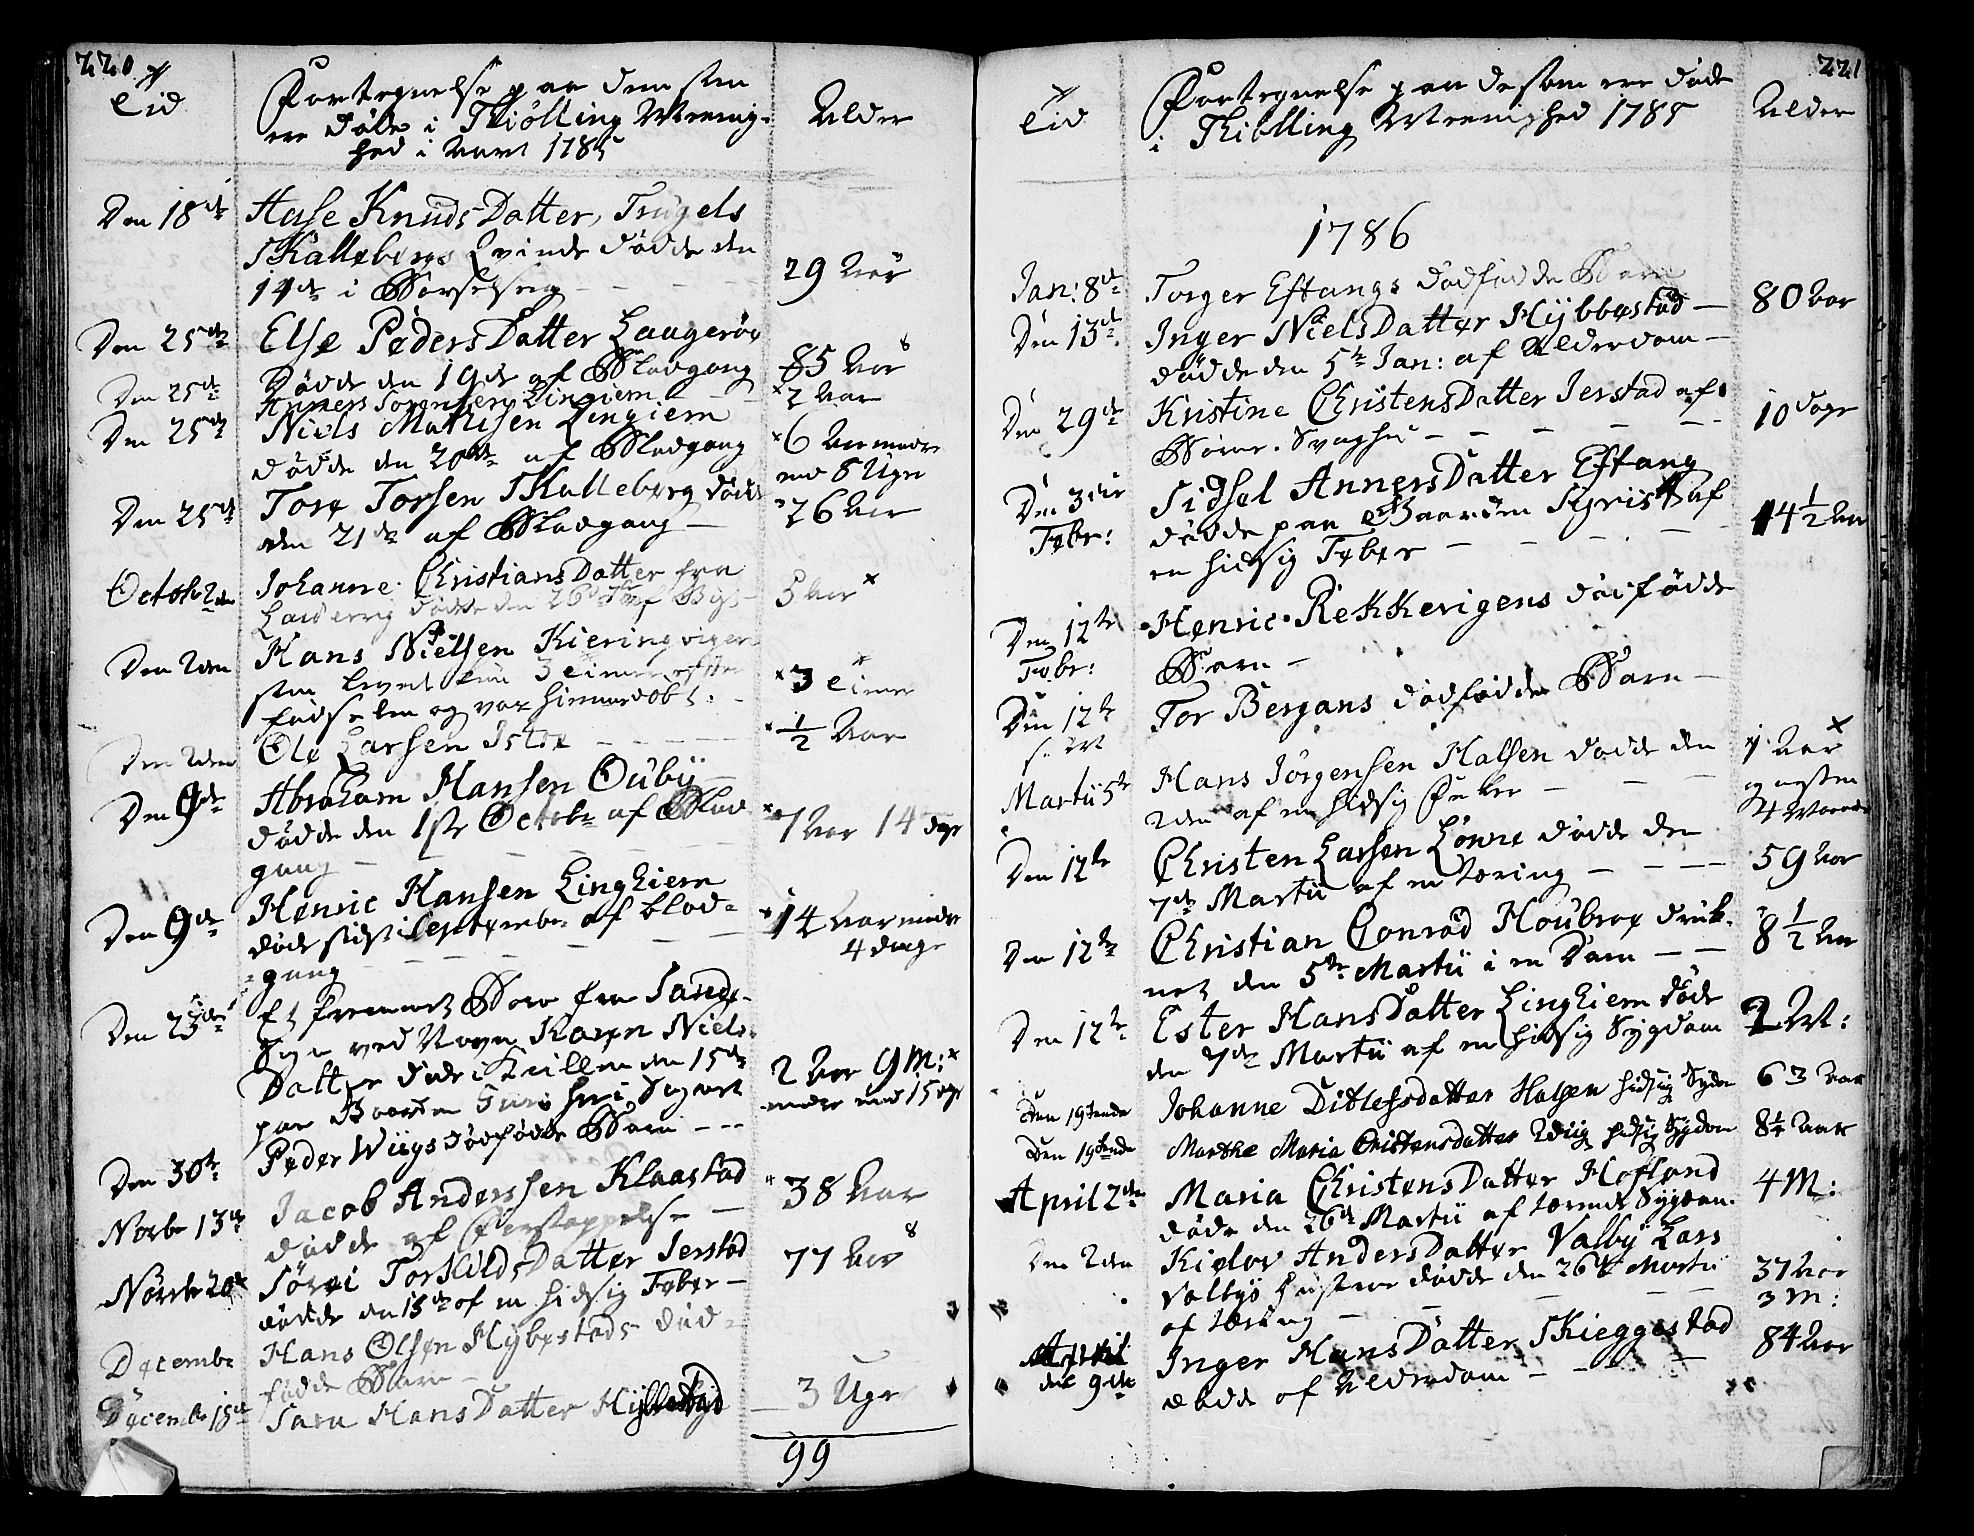 220
Tid
Fortegnelse paa dem som
ere døde i Thiølling Menig-
hed i Aaret 1785
Alder
Den 18de
Aase Knuds Datter, Trugels
Skallebergs Qvinde døde den
14de i Barselseng
29 Aar
Den 25de
Else Peders Datter Laugerøe
døde den 19de af Blodgang
85 Aar
Den 25de
Anners Lingiem
2 Aar
Den 25de
Niels Mathisen Lingiem
døde den 20de af Blodgang
6 Aar mindre
end 8 Uger
Den 25de
Tore Torsen Skalleberg døde
den 21de af Blodgang
26 Aar
Octobr 2den
Johanne Christians Datter fra
døde den 26de
5 Aar
Den 2den
Hans Nielsen Kieringvigen
som levede kun 3 Timer efter
fødselen og var hiemmedøbt.
3 Timer
Den 2den
Ole Larsen Istre
1/2 Aar
Den 9de
Abraham Hansen Ouby
døde den 1ste Octobr af Blod
gang
7 Aar 14 dage
Den 9de
Henric Hansen Linghiem
døde sidst i September af blod-
gang
14 Aar mindre
4 dage
Den 23de
Et fremmet Barn fra Lande-
ved Navn Karen Niels-
Datter døde i Qvillen den 15de
paa
2 Aar 9 M:
mindre end 15 dage
Den 30te
Peder Wiigs dødfødde Barn
Novbr 13de
Jacob Anderssen Klaastad
døde af Forstoppelse
38 Aar
Novbr 20de
Sørei Torkilds Datter Jerstad
døde den 15de af en hidsig Feber
77 Aar
Decembr
Hans Olsen Hybestads død-
fødde Barn
Decembr 18de
Sara Hans Datter
3 Uger
99
221
Tid
Fortegnelse paa de som ere døde
i Thiølling Menighed 1785
Alder
1786
Jan: 8de
Torger Eftangs dødfødde Barn
Den 13de
Inger Niels Datter Hybbestad
døde den 5te Jan: af Alderdom
80 Aar
Den 29de
Kristine Christens Datter Jerstad af
Børne Svaghed
10 dage
Den 3die
Febr:
Sidsel Anners Datter Eftang
døde paa Gaarden af
en hidsig Feber
14 1/2 Aar
Den 12te
Febr:
Henric Rekkevigens dødfødde
Barn
Den 12te
Tor Bergans dødfødde Barn
Martii 5te
Hans Jørgensen Halsen døde den
2den af en hidsig Feber
1 Aar
og nesten
4 Maaneder
Den 12te
Christen Larsen Lønne døde den
7de Martii af en Tæring
59 Aar
Den 12te
Christian Conrad Houbroe druk-
net den 5te Martii i en Dam
8 1/2 Aar
Den 12te
Ester Hans Datter Linghiem døde
den 7de Martii af en hidsig Sygdom
2 M:
Den 19tende
Johanne Ditlefsdatter Halsen hidsig Sygdom
63 Aar
Den 19tende
Marthe Maria Christensdatter Wiig hidsig Sygdom
8 1/4 Aar
April 2den
Maria Christens Datter Hofland
døde den 26de Martii af tærende Sygdom.
4 M:
Den 2den
Kielov Anders Datter Valby Lars
Valbys Hustrue døde den 26de Martii
af Tæring
37 Aar
3 M:
April
den 9de
Inger Hans Datter Skieggestad
døde af Alderdom
84 Aar